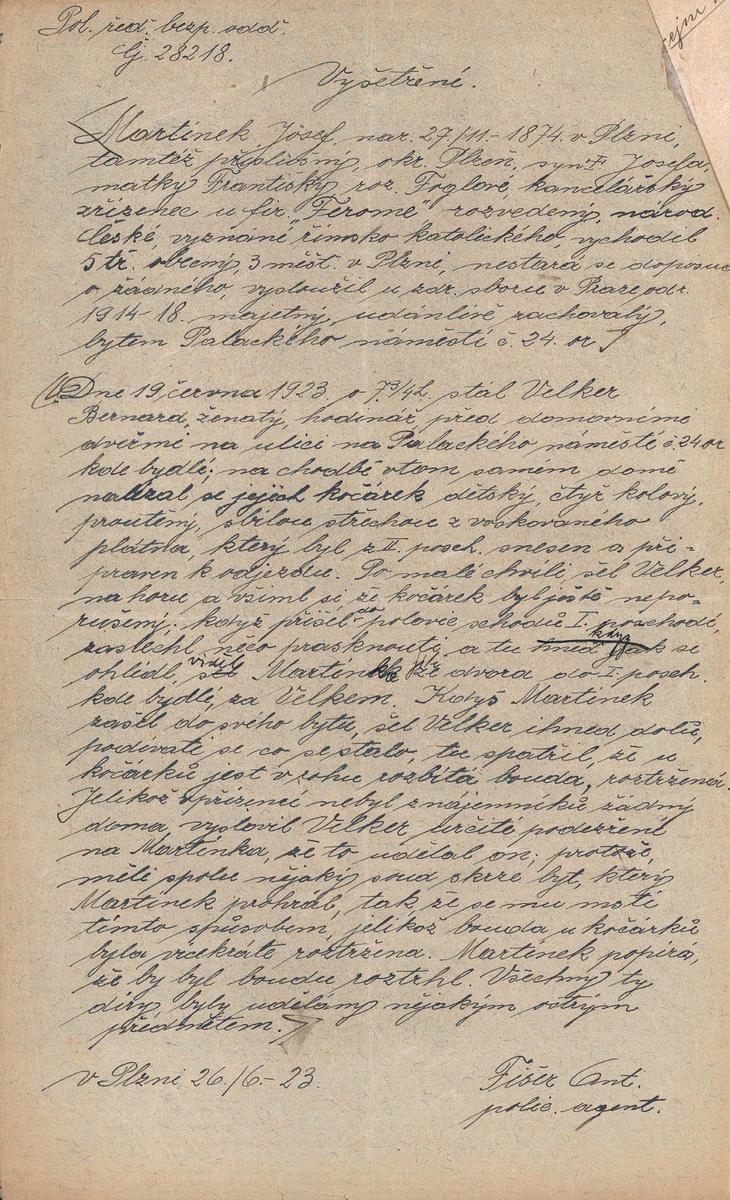 Pol. řed. bezp. odd.
Čj. 28218.
Vyšetřené.
Martínek Josef, nar. 27./11.-1874. v Plzni,
tamtéž příslušný, okr. Plzeň, syn F. Josefa,
matky Františky roz. Foglové, kancelářský
zřízenec u fir. "Ferome" rozvedený, národ.
české, vyznání římsko katolického, vychodil
5 tř. obecný, 3 měšť. v Plzni, nestará se doposud
o žádného, vysloužil u zdr. sboru v Praze od r.
1914-18. majetný, udánlivě zachovalý,
bytem Palackého náměstí č. 24. or
Dne 19. června 1923. o 7 3/4 h. stál Velker
Bernard, ženatý, hodinář, před domovními
dveřmi na ulici na Palackého náměstí č. 24 or
kde bydlí; na chodbě v tom samém domě
nalézal se jejich kočárek dětský, čtyř kolový,
proutěný, s bílou střechou z voskovaného
plátna, který byl z II. posch. snesen a při-
praven k odjezdu. Po malé chvíli, šel Velker,
na horu a vsiml si že kočárek byl ještě nepo-
rušený; když přišel do polovic schodů I. poschodí,
zaslechl něco prasknouti, a tu když se
ohlídl, viděl Martínka jíž ze dvora do I. posch.
kde bydlí, za Velkem. Když Martínek
zašel do svého bytu, šel Velker ihned dolů,
podívati se co se stalo, tu spatřil, že u
kočárků jest v rohu rozbitá bouda, roztržená.
Jelikož v přízemí nebyl z nájemníků žádný
doma, vyslovil Velker určité podezření
na Martínka, že to udělal on; protože,
měli spolu nějaký soud skrze byt, který
Martínek prohrál, tak že se mu mstí
tímto spůsobem, jelikož bouda u kočárků
byla vícekráte roztržena. Martínek popírá,
že by byl boudu roztrhl. Všechny ty
díry byly udělány nějakým ostrým
předmětem.
v Plzni 26./6.-23.
Fišer Ant.
polic. agent.